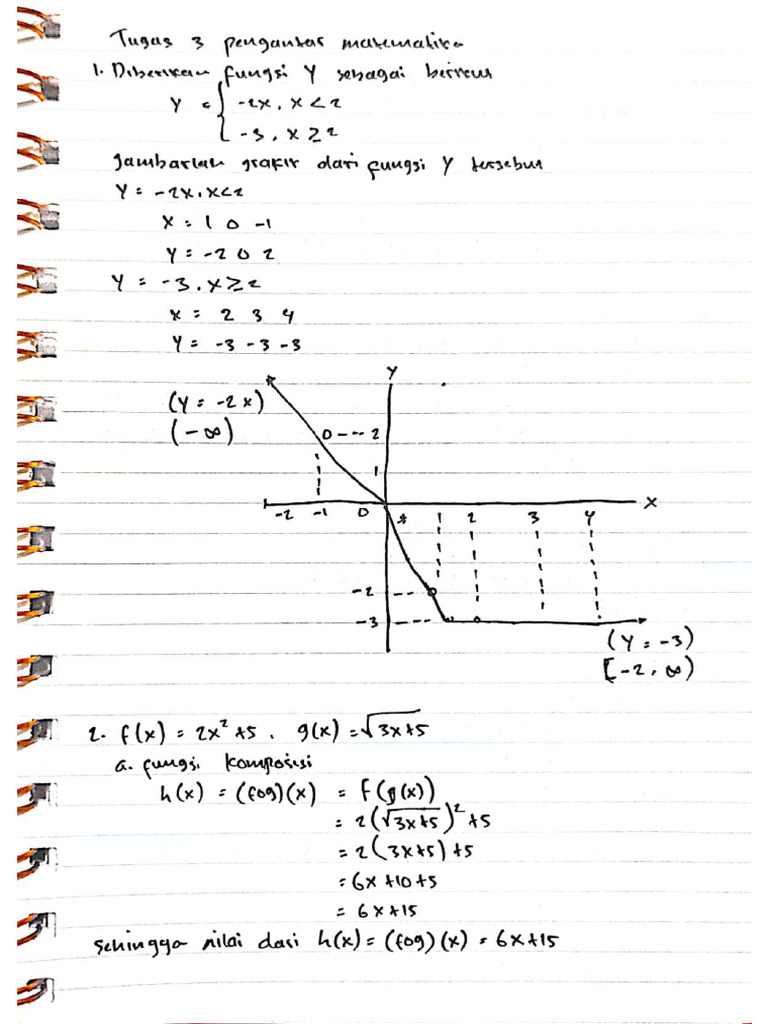 Tugas 3 pengantar matematika
1. Diberikan fungsi Y sebagai berikut
Y = { -2x, x < 2
-3, x ≥ 2
gambarlah grafik dari fungsi Y tersebut
Y = -2x, x<2
x = 1 0 -1
Y = -2 0 2
Y = -3, x ≥ 2
x = 2 3 4
Y = -3 -3 -3
Y
(Y = -2x)
(-∞)
0 --- 2
1
-2 -1 0 1 2 3 4 X
-2
-3
(Y = -3)
[-2, ∞)
2. f(x) = 2x² + 5, g(x) = √3x+5
a. fungsi komposisi
h(x) = (fog)(x) = f(g(x))
= 2(√3x+5)² + 5
= 2(3x+5) + 5
= 6x + 10 + 5
= 6x + 15
sehingga nilai dari h(x) = (fog)(x) = 6x+15